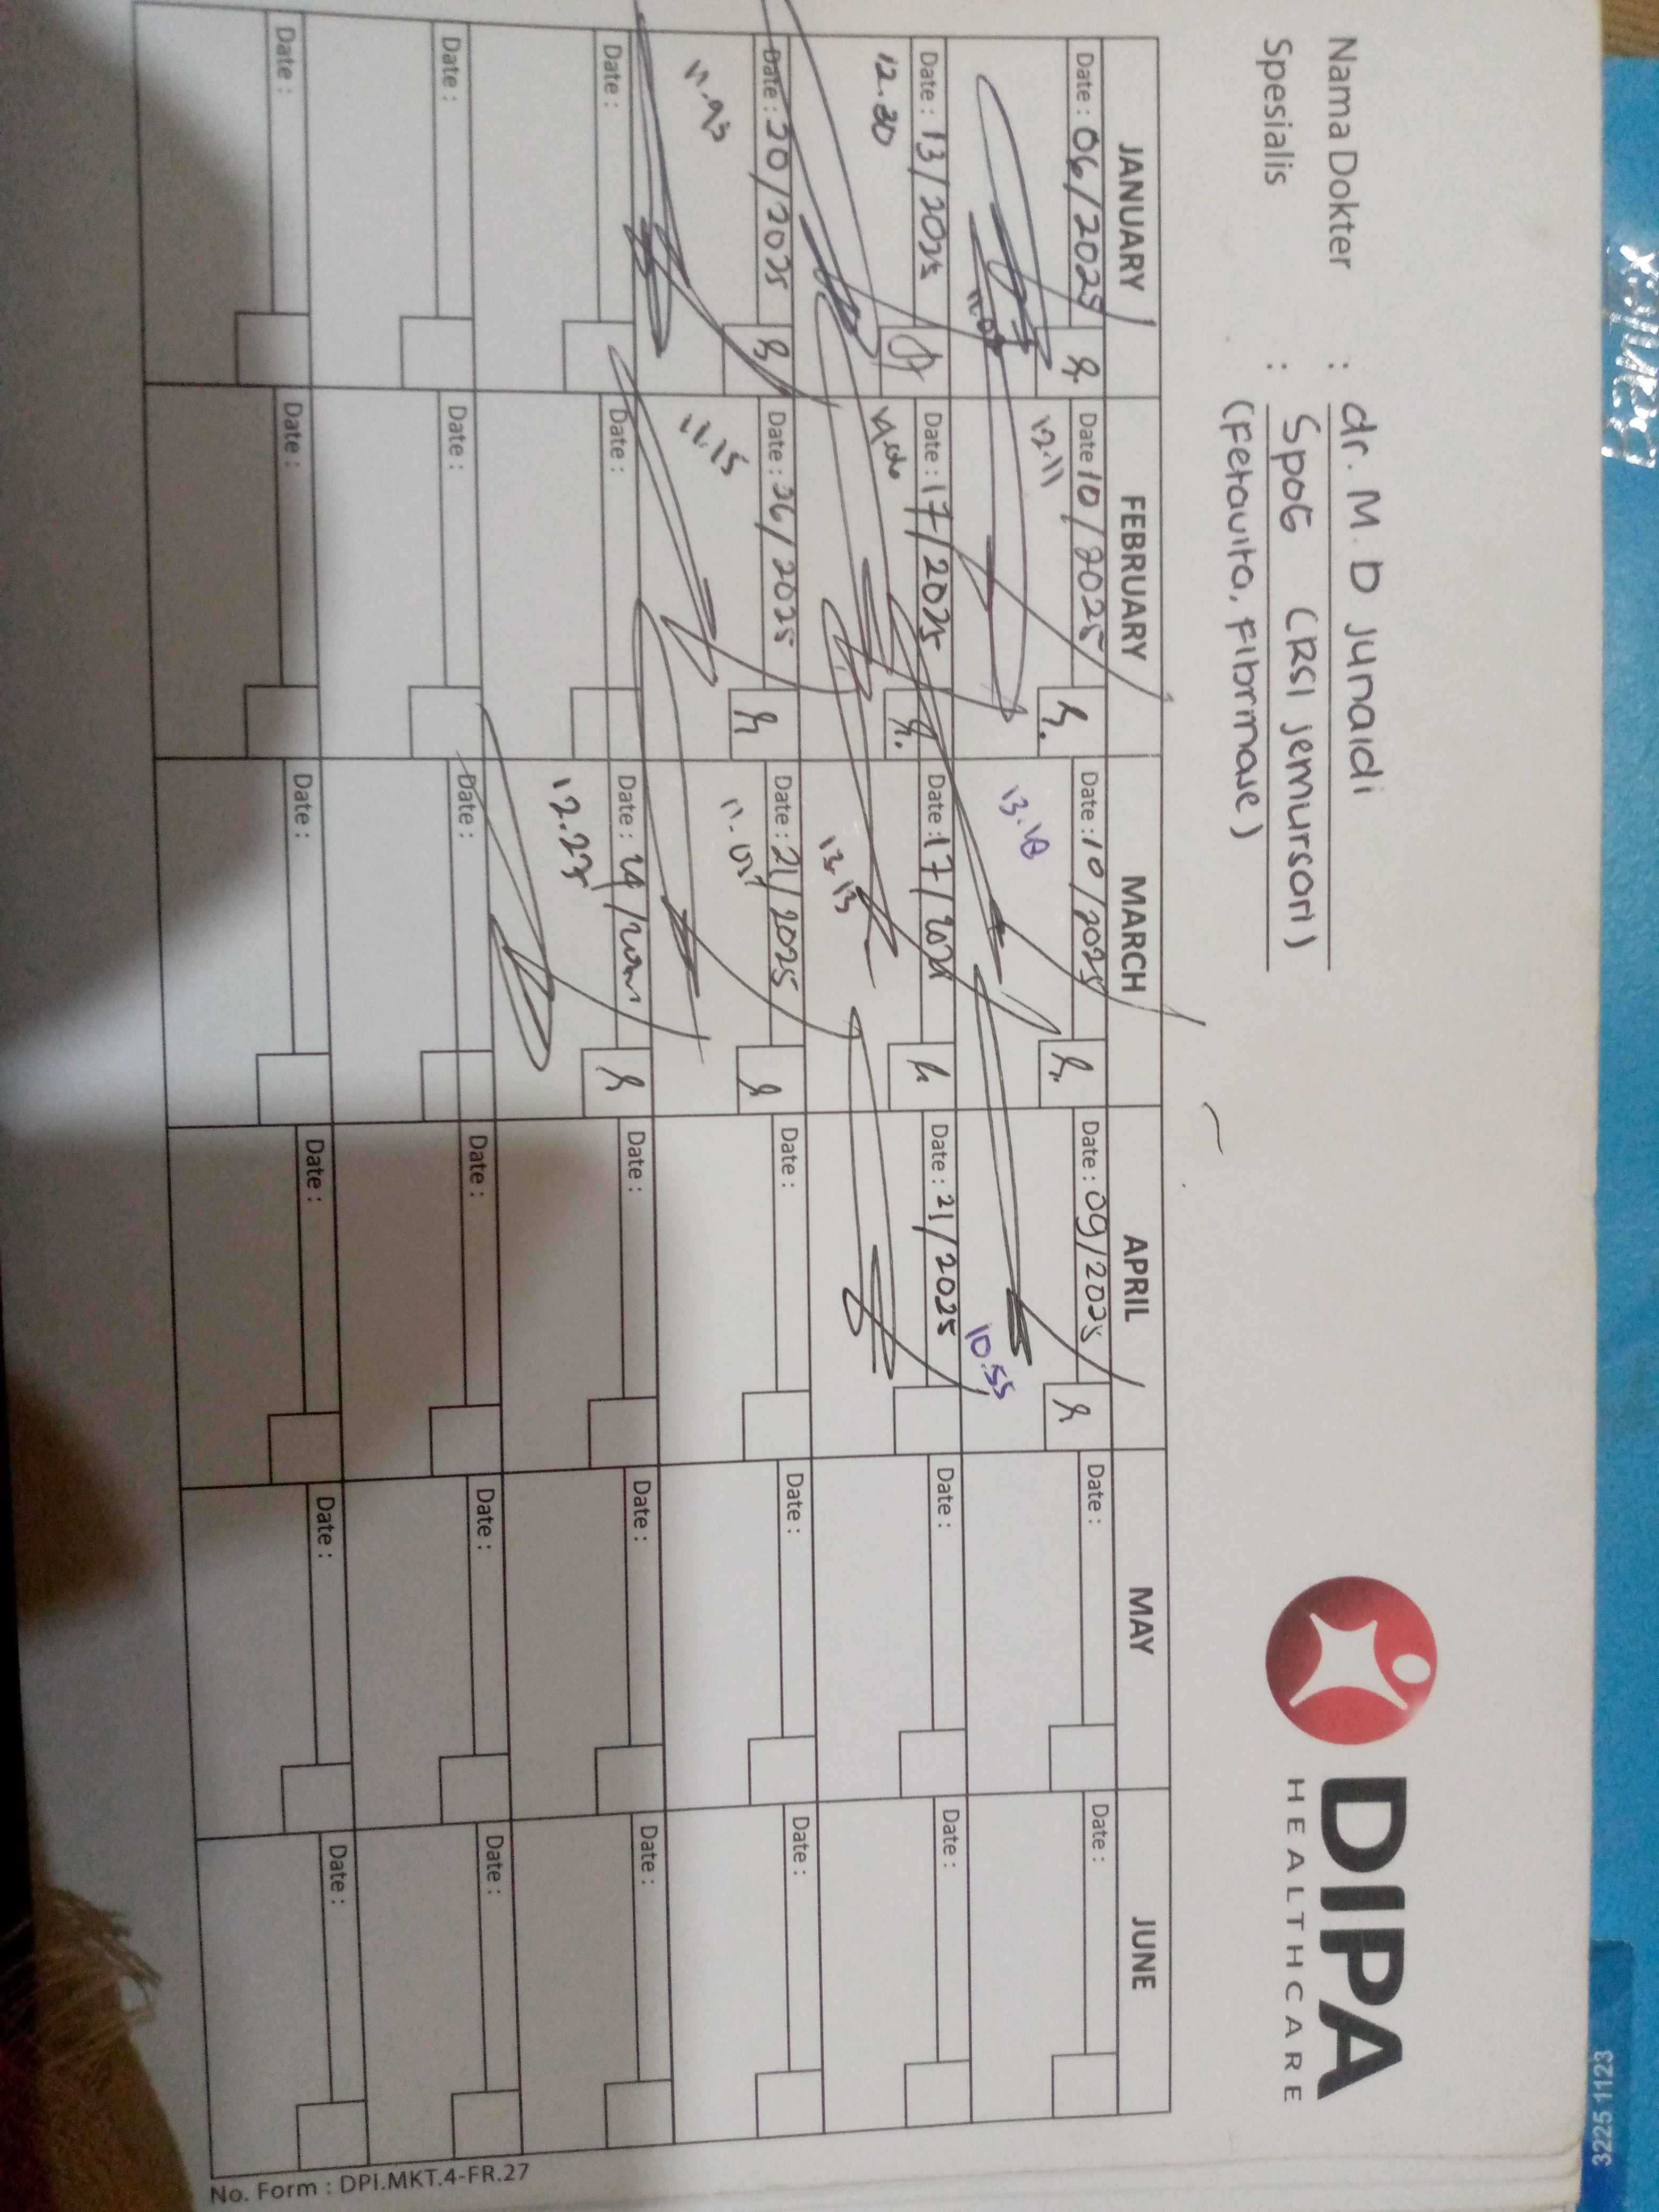 Nama Dokter : dr. M. D Junaidi
Spesialis : SpOG (RSI Jemursari)
DIPA
HEALTHCARE
JANUARY FEBRUARY MARCH APRIL MAY JUNE
Date : 06/2025 Date 10/2025 Date : 10/2025 Date : 09/2025 Date : Date :
12.11 13.18 10.55
Date : 13/2025 Date : 17/2025 Date : 17/ Date : 21/2025 Date : Date :
12.30 13.13
Date : 20/2025 Date : 26/2025 Date : 21/2025 Date : Date : Date :
11.15
Date : Date : Date : 24/ Date : Date : Date :
12.23
Date : Date : Date : Date : Date : Date :
Date : Date : Date : Date : Date : Date :
No. Form : DPI.MKT.4-FR.27
3225 1123